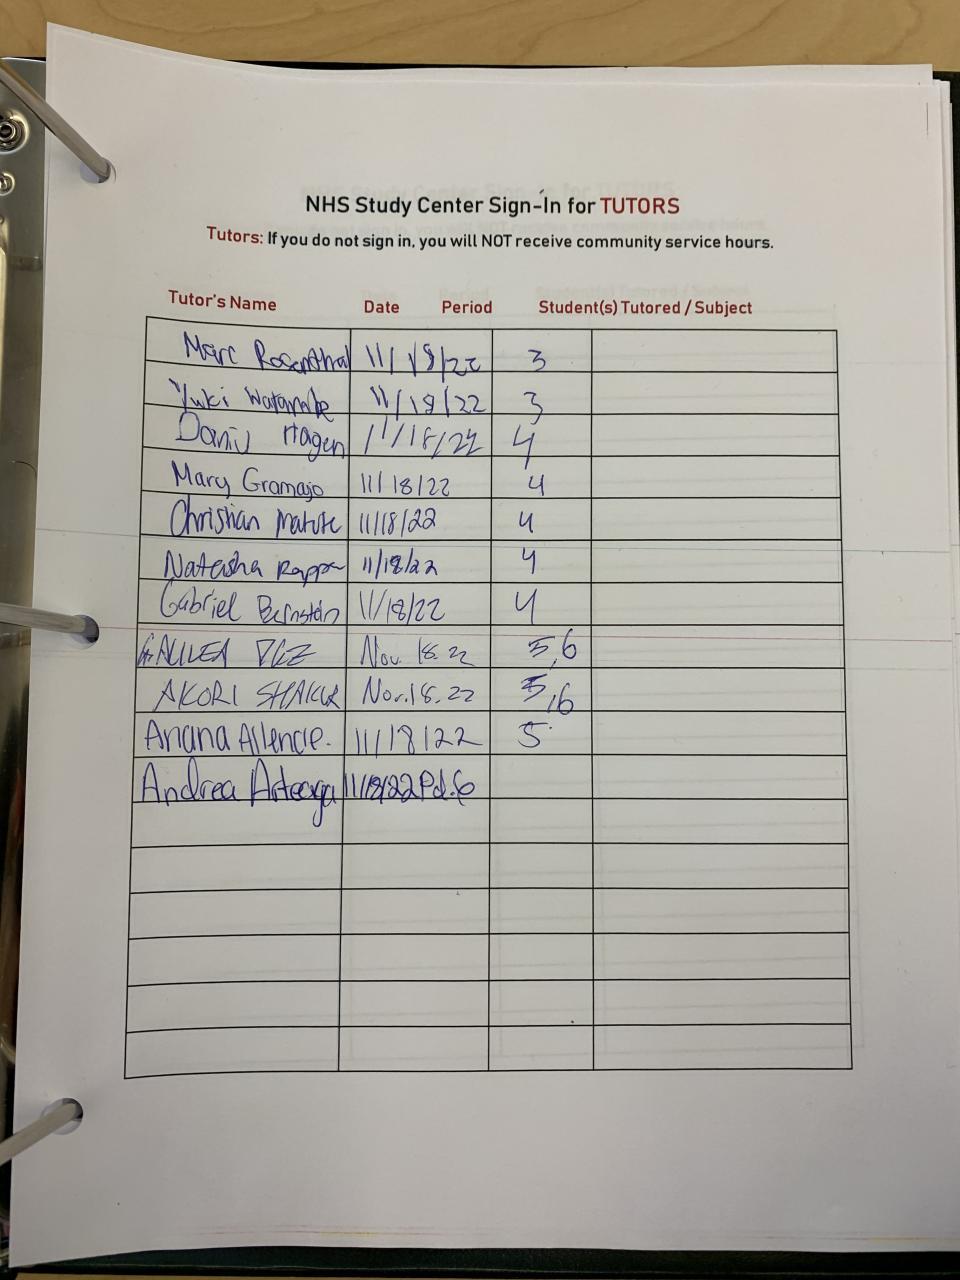 NHS Study Center Sign-In for TUTORS
Tutors: If you do not sign in, you will NOT receive community service hours.
Tutor's Name Date Period Student(s) Tutored / Subject
Marc Rosenthal 11/18/22 3
Yuki Watanabe 11/18/22 3
Hagen 11/18/22 4
Mary Gramajo 11/18/22 4
Christian Matute 11/18/22 4
Natasha 11/18/22 4
Gabriel Bernstein 11/18/22 4
Nov. 18. 22 5,6
AKORI SHAKUR Nov. 18. 22 5,6
Ariana 11/18/22 5
Andrea Arteaga 11/18/22 Pd. 6